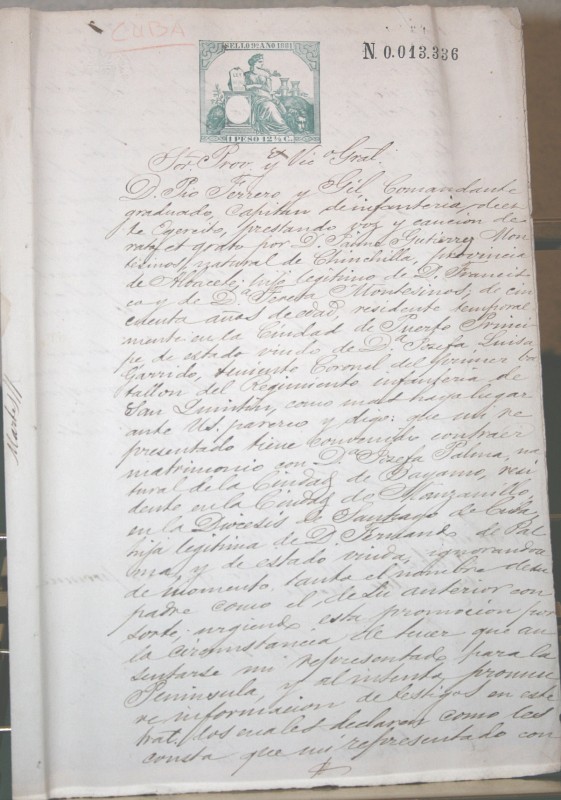 CUBA
SELLO 9º AÑO 1881
N. 0.013.336
1 PESO 12 ½ C.
Sor. Prov. y Vic. Gral.
D. Pio Ferrero y Gil Comandante
graduado, Capitan de infanteria, de es
te Egercito, prestando voz y caucion de
rato et grato por D. Jaime Gutierrez Mon
tesinos, natural de Chinchilla, provincia
de Albacete, hijo legitimo de D. Francis
co y de Dª Teresa Montesinos, de cin
cuenta años de edad, residente temporal
mente en la Ciudad de Puerto Princi
pe, de estado viudo de Dª Josefa Luisa
Garrido, teniente Coronel del primer ba
tallon del Regimiento infanteria de
San Quintin, como mas haya lugar
ante US. parezco y digo: que mi re
presentado tiene convenido contraer
matrimonio con Dª Josefa Palma, na
tural de la Ciudad de Bayamo, resi
dente en la Ciudad de Manzanillo,
en la Diocesis de Santiago de Cuba,
hija legitima de D. Fernando de Pal
ma, y de estado viuda, ignorandose
de momento tanto el nombre de su
padre como el de su anterior con
sorte, urgiendo esta promocion por
la circunstancia de tener que au
sentarse mi representado para la
Peninsula, y al intento promue
ve informacion de testigos en este
trat. los cuales declaren como les
consta que mi representado con